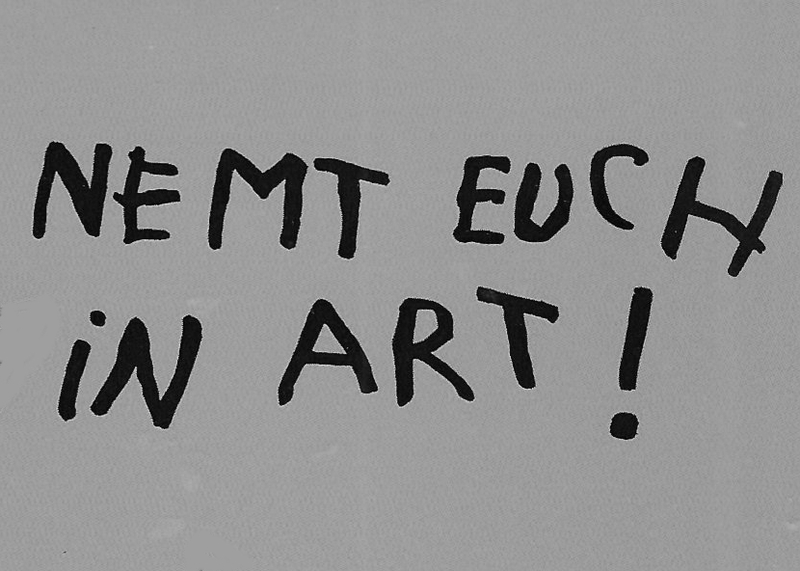 NEMT EUCH
iN ART!